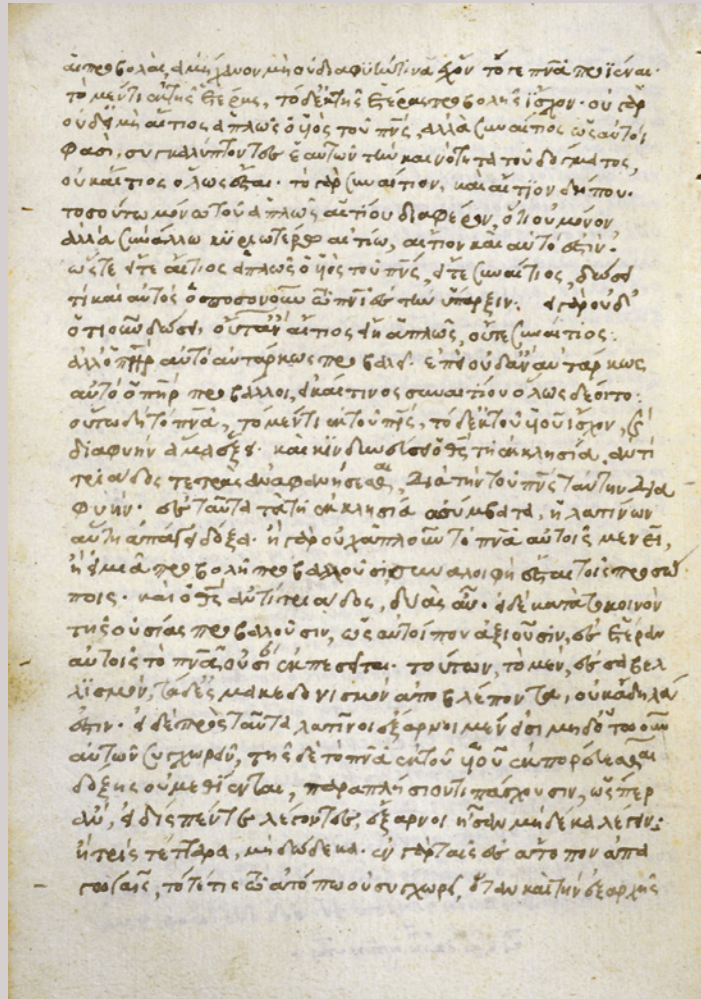 αἱ προβολαὶ, ἀμήχανον μὴ οὐ διαφυὴν τινα σχεῖν τότε πνᾶ προϊέναι·
τὸ μέν τι ἐκ τῆς ἑτέρας, τὸ δ' ἐκ τῆς ἑτέρας προβολῆς ἴσχον· οὐ γὰρ
οὐδὲ μὴ αἴτιος ἁπλῶς ὁ υἱὸς τοῦ πνς, ἀλλὰ συναίτιος ὡς αὐτοί
φασι, συγκαλύπτοντες ἑαυτῶν τὴν καινότητα τοῦ δόγματος,
οὐκ αἴτιος ὅλως ἔσται· τὸ γὰρ συναίτιον, καὶ αἴτιον δήπου·
τοσούτω μόνω τοῦ ἁπλῶς αἰτίου διαφέρον, ὅτι οὐ μόνον
ἀλλὰ σὺν ἄλλω κυριωτέρω αἰτίω, αἴτιον καὶ αὐτό ἐστιν·
ὥστε εἴτε αἴτιος ἁπλῶς ὁ υἱὸς τοῦ πνς, εἴτε συναίτιος, δώσει
τι καὶ αὐτὸς ὁποσονοῦν τῶ πνι ἐς τὴν ὕπαρξιν· εἰ γὰρ οὐδ'
ὁτιοῦν δώσει, οὔτ' ἂν αἴτιος εἴη ἁπλῶς, οὔτε συναίτιος·
ἀλλ' ὁ πηρ αὐτὸ αὐτάρκως προβαλεῖ· ἐπεὶ οὐδ' ἂν αὐτάρκως
αὐτὸ ὁ πηρ προβάλλοι, εἰ καί τινος συναιτίου ὅλως δέοιτο·
οὕτω δὴ τὸ πνᾶ, τὸ μέν τι ἐκ τοῦ πρς, τὸ δ' ἐκ τοῦ υἱοῦ ἴσχον,
διαφυὴν ἅμα ἕξει· καὶ κινδυνεύσει ὁ θς τῆ ἐκκλησία, ἀντὶ
τριάδος τετρὰς ἀναφανήσεσθαι, διὰ τὴν τοῦ πνς ταύτην δια
φυήν· ἐς ταῦτα τὰ τῆ ἐκκλησία ἀσύμβατα, ἡ λατίνων
αὕτη ἀπάγει δόξα· ἢ γὰρ οὐχ ἁπλοῦν τὸ πνᾶ αὐτοῖς μενεῖ,
ἢ εἰ μιᾶ προβολῆ προβάλλουσι συναλοιφὴ ἔσται τοῖς προσώ
ποις· καὶ ὁ θς ἀντὶ τριάδος, δυὰς αὖ· εἰ δὲ κατὰ τὸ κοινὸν
τῆς οὐσίας προβαλοῦσιν, ὡς αὐτοί που ἀξιοῦσιν, ἐς ἑτέραν
αὐτοῖς τὸ πνᾶ οὐσίαν ἐκπεσεῖται· τούτων, τὸ μὲν, ἐς σαβελ
λισμὸν, τὰ δ' ἐς μακεδονισμὸν ἀποβλέποντα, οὐκ ἄδηλά
ἐστιν· εἰ δὲ πρὸς ταῦτα λατῖνοι ἔξαρνοι μέν εἰσι μηδὲ τούτων
αὐτῶν συγχωρεῖν, τῆς δὲ τὸ πνᾶ ἐκ τοῦ υἱοῦ ἐκπορεύεσθαι
δόξης οὐ μεθίενται, παραπλήσιόν τι πάσχουσιν, ὥσπερ
ἂν, εἰ δὶς πέντε λέγοντες, ἔξαρνοι ἦσαν μὴ δέκα λέγειν·
ἢ τρὶς τέτταρα, μὴ δώδεκα· ἐν γὰρ ταῖς ἐς ἄτοπον ἀπα
γωγαῖς, τότε τις τῶ ἀτόπω οὐ συγχωρεῖ, ὅταν καὶ τὴν ἐξαρχῆς